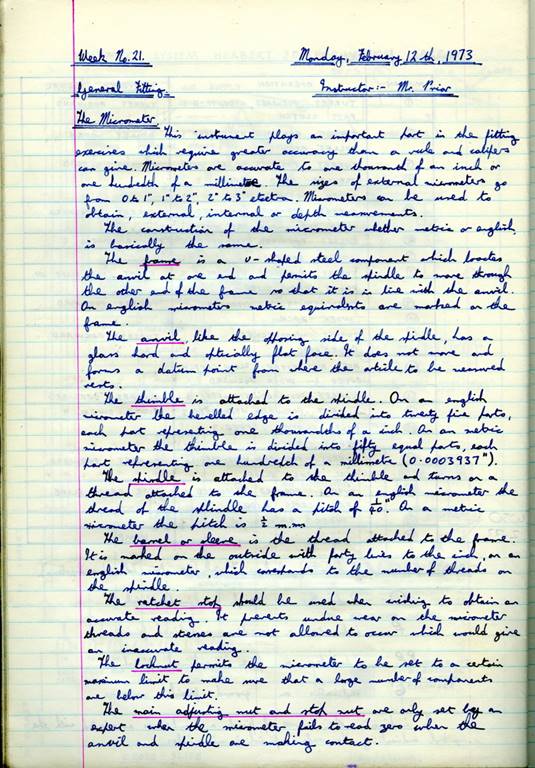 Week No. 21. Monday, February 12th, 1973
General Fitting. Instructor:- Mr. Prior
The Micrometer
This instrument plays an important part in the fitting
exercises which require greater accuracy than a rule and calipers
can give. Micrometers are accurate to one thousand of an inch or
one hundedth of a millimetre. The sizes of external micrometers go
from 0 to 1", 1" to 2", 2" to 3" etcetera. Micrometers can be used to
obtain, external, internal or depth measurements.
The construction of the micrometer whether metric or english,
is basically the same.
The frame is a U-shaped steel component which locates
the anvil at one end and permits the spindle to move through
the other end of the frame so that it is in line with the anvil.
On english micrometers metric equivalents are marked on the
frame.
The anvil, like the opposing side of the spindle, has a
glass hard and optically flat face. It does not move and
forms a datum point from where the article to be measured
rests.
The thimble is attached to the spindle. On an english
micrometer the bevelled edge is divided into twenty five parts,
each part representing one thousandths of a inch. On an metric
micrometer the thimble is divided into fifty equal parts, each
part representing one hundredth of a millimetre (0.0003937").
The spindle is attached to the thimble and turns on a
thread attached to the frame. On an english micrometer the
thread of the splindle has a pitch of 1/40". On a metric
micrometer the pitch is ½ m.m
The barrel or sleeve is the thread attached to the frame.
It is marked on the outside with forty lines to the inch, on an
english micrometer, which corresponds to the number of threads on
the spindle.
The ratchet stop should be used when to obtain an
accurate reading. It prevents undue wear on the micrometer
threads and stresses are not allowed to occur which would give
an inaccurate reading.
The locknut permits the micrometer to be set to a certain
maximum limit to make sure that a large number of components
are below this limit.
The main adjusting nut and stop nut are only set by an
expert when the micrometer fails to read zero when the
anvil and spindle are making contact.